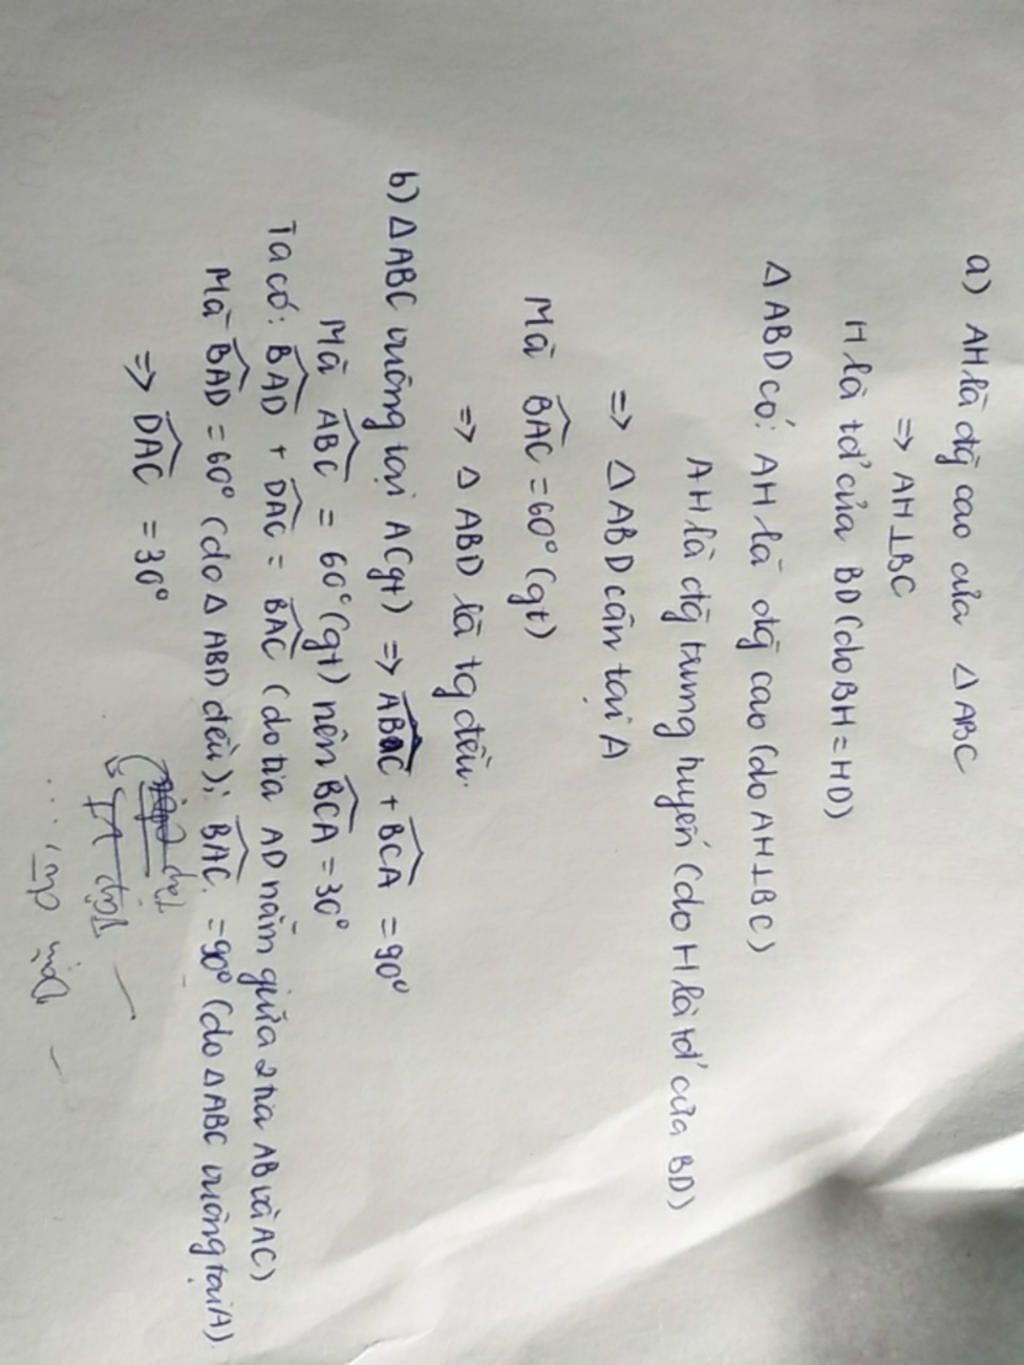 a) AH là đg̃ cao của △ABC
=> AH⊥BC
H là tđ' của BD (do BH = HD)
△ABD có: AH là đg̃ cao (do AH⊥BC)
AH là đg̃ trung tuyến (do H là tđ' của BD)
=> △ABD cân tại A
Mà BAC = 60° (gt)
=> △ABD là tg đều.
b) △ABC vuông tại A (gt) => ABC + BCA = 90°
Mà ABC = 60° (gt) nên BCA = 30°
Ta có: BAD + DAC = BAC (do tia AD nằm giữa 2 tia AB và AC)
Mà BAD = 60° (do △ABD đều); BAC = 90° (do △ABC vuông tại A).
=> DAC = 30°